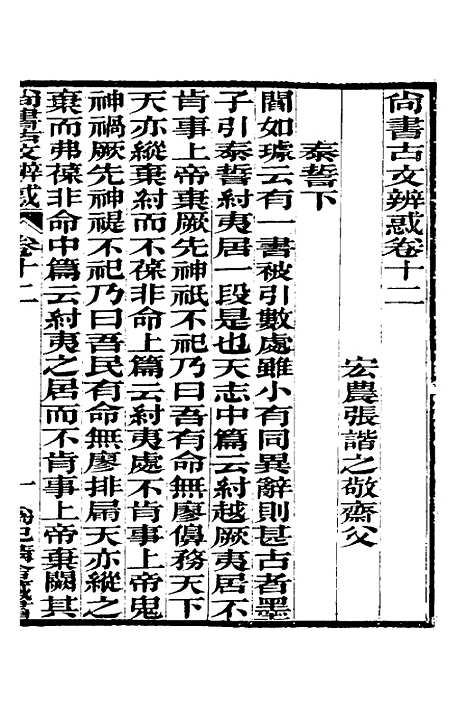 尙書古文辨惑卷十二
宏農張諧之敬齋父
泰誓下
閻如璩云有一書被引數處雖小有同異辭則甚古者墨
子引泰誓紂夷居一段是也天志中篇云紂越厥夷居不
肯事上帝棄厥先神祇不祀乃曰吾有命無廖僀務天下
天亦縱棄紂而不葆非命上篇云紂夷處不肯事上帝鬼
神禍厥先神禔不祀乃曰吾民有命無廖排扁天亦縱之
棄而弗葆非命中篇云紂夷之居而不肯事上帝棄闕其
尙書古文辨惑 卷十二 一